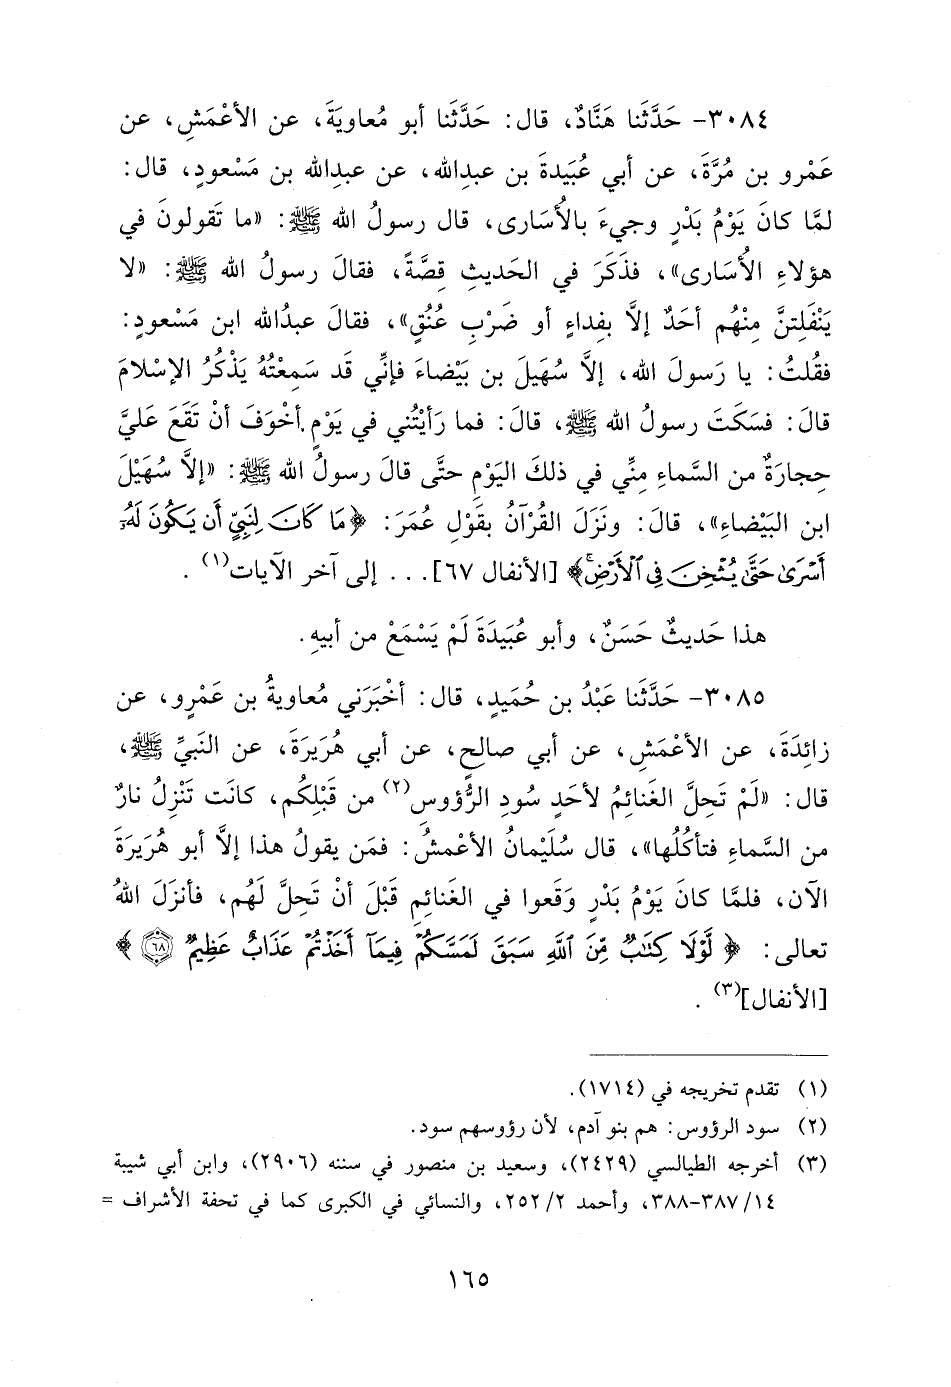 ٣٠٨٤- حَدَّثَنا هَنَّادٌ، قال: حَدَّثَنا أبو مُعاويَةَ، عن الأعْمَشِ، عن
عَمْرو بن مُرَّةَ، عن أبي عُبَيدةَ بن عبدِالله، عن عبدِالله بن مَسْعودٍ، قال:
لمَّا كانَ يَوْمُ بَدْرٍ وجيءَ بالأُسَارى، قال رسولُ الله ﷺ: «ما تَقولونَ في
هؤلاءِ الأُسَارى»، فذَكَرَ في الحَديثِ قِصَّةً، فقالَ رسولُ الله ﷺ: «لا
يَنْفَلِتنَّ مِنْهُم أحَدٌ إلاَّ بِفداءٍ أو ضَرْبِ عُنُقٍ»، فقالَ عبدُالله ابن مَسْعودٍ:
فقُلتُ: يا رَسولَ الله، إلاَّ سُهَيلَ بن بَيْضاءَ فإنِّي قَد سَمِعْتُهُ يَذْكُرُ الإسْلامَ
قالَ: فسَكَتَ رسولُ الله ﷺ، قالَ: فما رَأيْتُني في يَوْمٍ أخْوَفَ أنْ تَقَعَ عَليَّ
حِجارَةٌ من السَّماءِ مِنِّي في ذلكَ اليَوْمِ حتَّى قالَ رسولُ الله ﷺ: «إلاَّ سُهَيْلَ
ابن البَيْضاءِ»، قالَ: ونَزَلَ القُرْآنُ بقَوْلِ عُمَرَ: ﴿مَا كَانَ لِنَبِيٍّ أَن يَكُونَ لَهُۥٓ
أَسْرَىٰ حَتَّىٰ يُثْخِنَ فِي ٱلْأَرْضِۚ﴾ [الأنفال ٦٧]... إلى آخر الآيات(١).
هذا حَديثٌ حَسَنٌ، وأبو عُبَيدَةَ لَمْ يَسْمَعْ من أبيهِ.
٣٠٨٥- حَدَّثَنا عَبْدُ بن حُمَيدٍ، قال: أخْبَرَني مُعاويةُ بن عَمْرٍو، عن
زائِدَةَ، عن الأعْمَشِ، عن أبي صالحٍ، عن أبي هُرَيرَةَ، عن النَبيِّ ﷺ،
قال: «لَمْ تَحِلَّ الغَنائِمُ لأحَدٍ سُودِ الرُّؤوس(٢) من قَبْلِكُم، كانَت تَنْزِلُ نارٌ
من السَّماءِ فتَأكُلُها»، قال سُلَيْمانُ الأعْمشُ: فمَن يقولُ هذا إلاَّ أبو هُرَيرَةَ
الآن، فلمَّا كانَ يَوْمُ بَدْرٍ وَقَعوا في الغَنائِمِ قَبْلَ أنْ تَحِلَّ لَهُم، فأنزَلَ اللهُ
تعالى: ﴿لَّوْلَا كِتَٰبٌ مِّنَ ٱللَّهِ سَبَقَ لَمَسَّكُمْ فِيمَآ أَخَذْتُمْ عَذَابٌ عَظِيمٌ ۝٦٨﴾
[الأنفال](٣).
(١) تقدم تخريجه في (١٧١٤).
(٢) سود الرؤوس: هم بنو آدم، لأن رؤوسهم سود.
(٣) أخرجه الطيالسي (٢٤٢٩)، وسعيد بن منصور في سننه (٢٩٠٦)، وابن أبي شيبة
١٤/٣٨٧-٣٨٨، وأحمد ٢/٢٥٢، والنسائي في الكبرى كما في تحفة الأشراف =
١٦٥